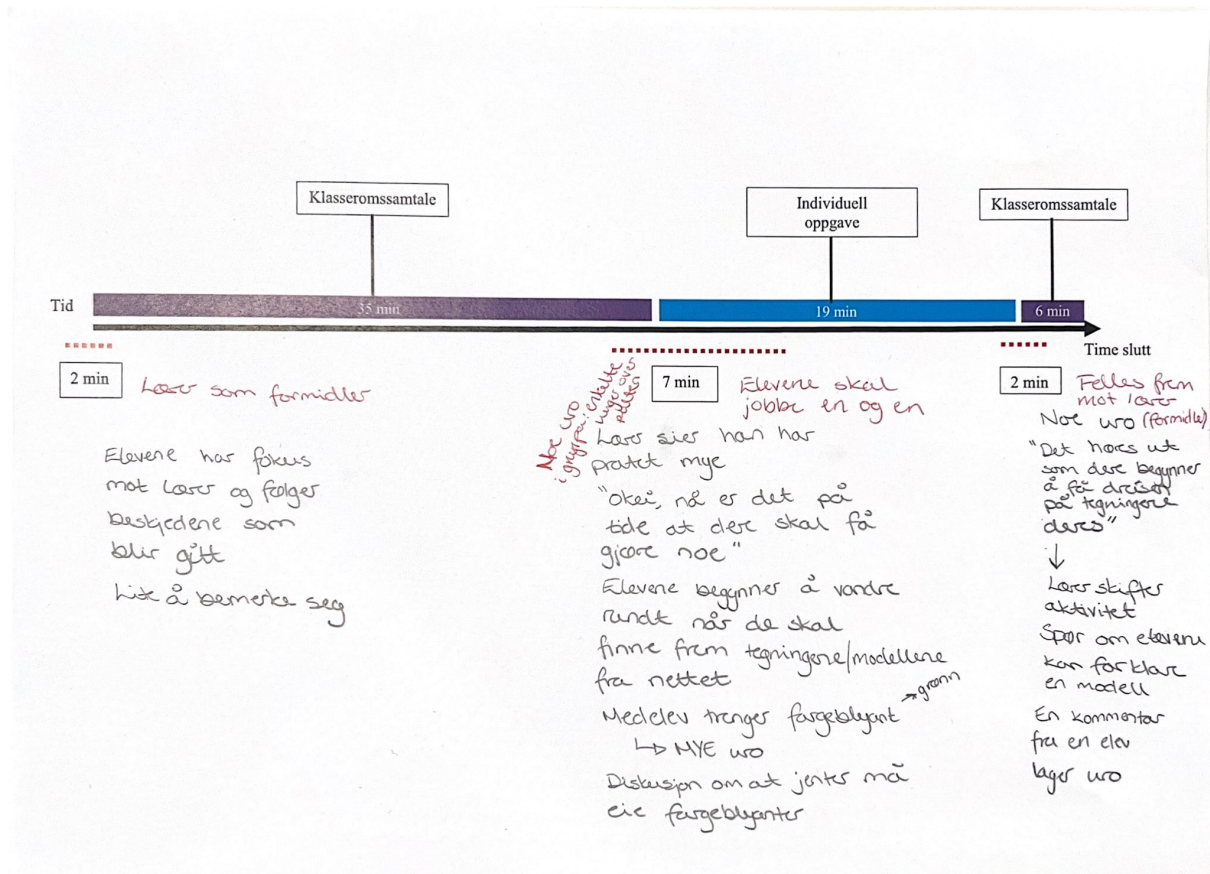 Klasseromssamtale
Individuell
oppgave
Klasseromssamtale
Tid
35 min
19 min
6 min
Time slutt
2 min
Lærer som formidler
Elevene har fokus
mot lærer og følger
beskjedene som
blir gitt
Lite å bemerke seg
Noe uro
i grupper: enkelte
henger over
pulten
7 min
Elevene skal
jobbe en og en
Lærer sier han har
pratet mye
"Okei, nå er det på
tide at dere skal få
gjøre noe"
Elevene begynner å vandre
rundt når de skal
finne frem tegningene/modellene
fra nettet
Medelev trenger fargeblyant
→ grønn
↳ MYE uro
Diskusjon om at jenter må
eie fargeblyanter
2 min
Felles frem
mot lærer
(formidle)
Noe uro
"Det høres ut
som dere begynner
å få dreisen
på tegningene
deres"
↓
Lærer skifter
aktivitet
Spør om elevene
kan forklare
en modell
En kommentar
fra en elev
lager uro